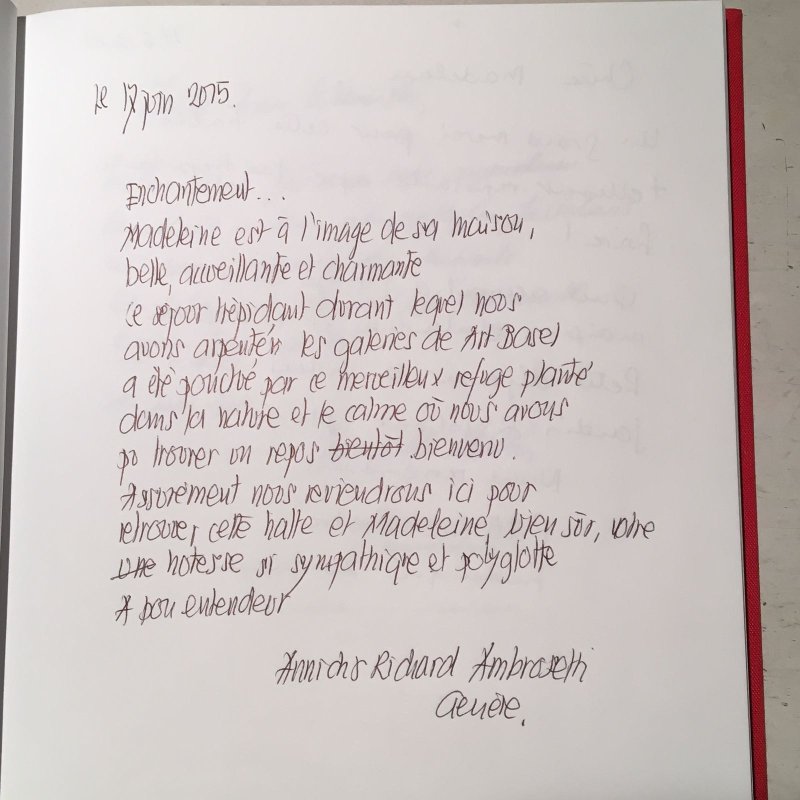 Le 17 juin 2015.
Enchantement...
Madeleine est à l'image de sa maison,
belle, accueillante et charmante
Ce séjour trépidant durant lequel nous
avons arpentés les galeries de Art Basel
a été ponctué par ce merveilleux refuge planté
dans la nature et le calme où nous avons
pu trouver un repos bientôt bienvenu.
Assurément nous reviendrons ici pour
retrouver cette halte et Madeleine, bien sûr, votre
une hotesse si sympathique et polyglotte
A bon entendeur
Richard Ambrosetti
Genève.